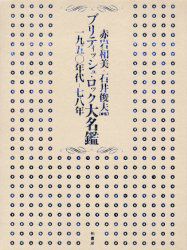 赤岩和美・石井俊夫 編
ブリティッシュ・ロック大名鑑
一九五〇年代-七八年
柏書房